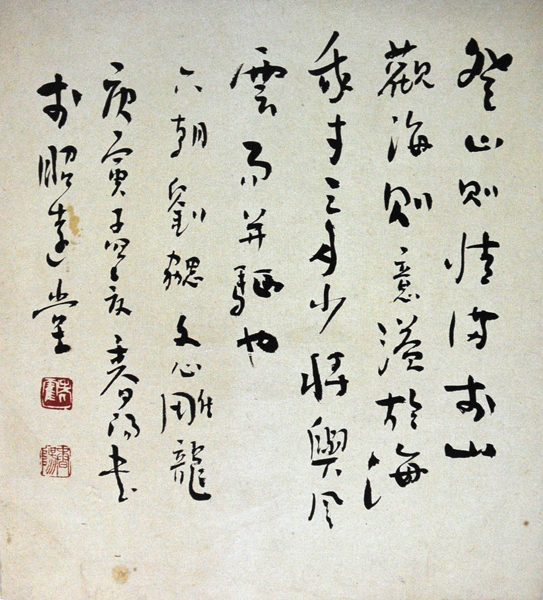 登山則情滿於山
觀海則意溢於海
我才之多少將與風
雲而并驅也
六朝劉勰文心雕龍
庚寅孟夏春陽書
於昭遠堂